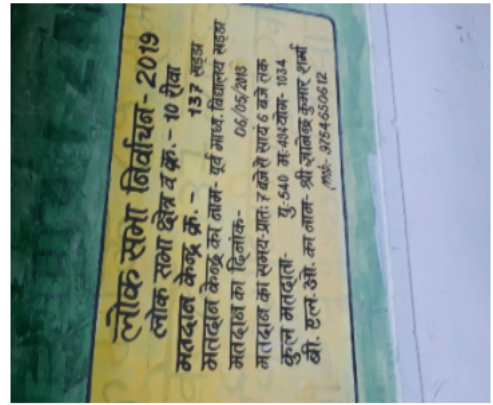 लोक सभा निर्वाचन- 2019
लोक सभा क्षेत्र व क्र.- 10 रीवा
मतदान केन्द्र क्र. - 137 खड्डा
मतदान केन्द्र का नाम- पूर्व माध्य. विद्यालय खड्डा
मतदान का दिनांक- 06/05/2013
मतदान का समय-प्रातः 7 बजे से सायं 6 बजे तक
कुल मतदाता- पु.-540 म.-494 योग- 1034
बी. एल. ओ. का नाम- श्री ज्ञानेन्द्र कुमार शर्मा
9754650612